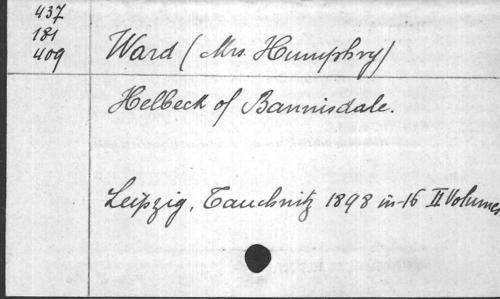 437
181
409
Ward (Mrs. Humphry)
Helbeck of Bannisdale.
Leipzig, Tauchnitz 1898 in-16 II Volumes